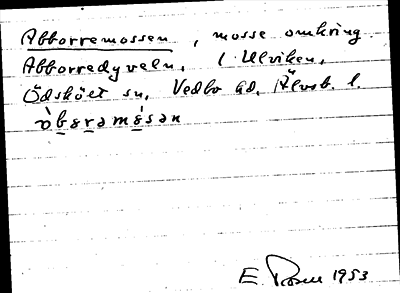 Abborremossen, mosse omkring
Abborredyveln, i Ulviken,
Ödskölt sn, Vedbo hd, Älvsb. l.
àbɵrəmósən
E. Rosell 1953